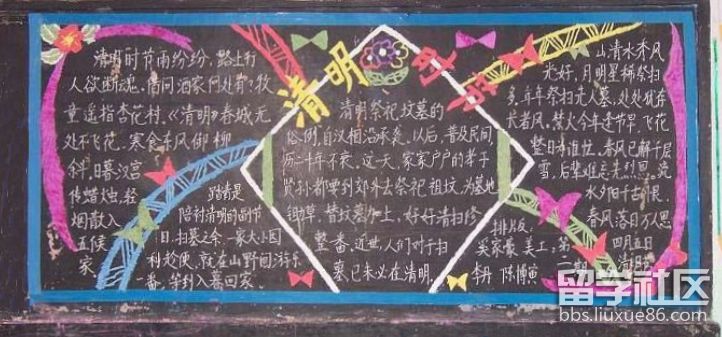 清明
清明时节雨纷纷，路上行
人欲断魂。借问酒家何处有？牧
童遥指杏花村。《清明》春城无
处不飞花，寒食东风御柳
斜，日暮汉宫
传蜡烛，轻
烟散入
五侯
家
踏青是
陪衬清明的副节
日。扫墓之余，一家大小
利趁便，就在山野间游乐
一番，等到入暮回家。
清明祭祀坟墓的
俗例，自汉相沿承袭，以后，普及民间，
历二千年不衰。这一天，家家户户的孝子
贤孙都要到郊外去祭祀祖坟，为墓地
锄草，替坟墓加土，好好清扫修
整一番。近世，人们对于扫
墓，已未必在清明。
山清水秀风
光好，月明星稀祭扫
多，年年祭扫先人墓，处处犹存
长者风。禁火今年逢节早，飞花
整日有谁忙，春风已解千层
雪，后辈难忘先烈恩，完
水夕阳千古恨，
春风落日万人思
四月五日
清明节
排版：
奚家豪 美工：
李丹 陈博
第
二期
留学社区
bbs.liuxue86.com